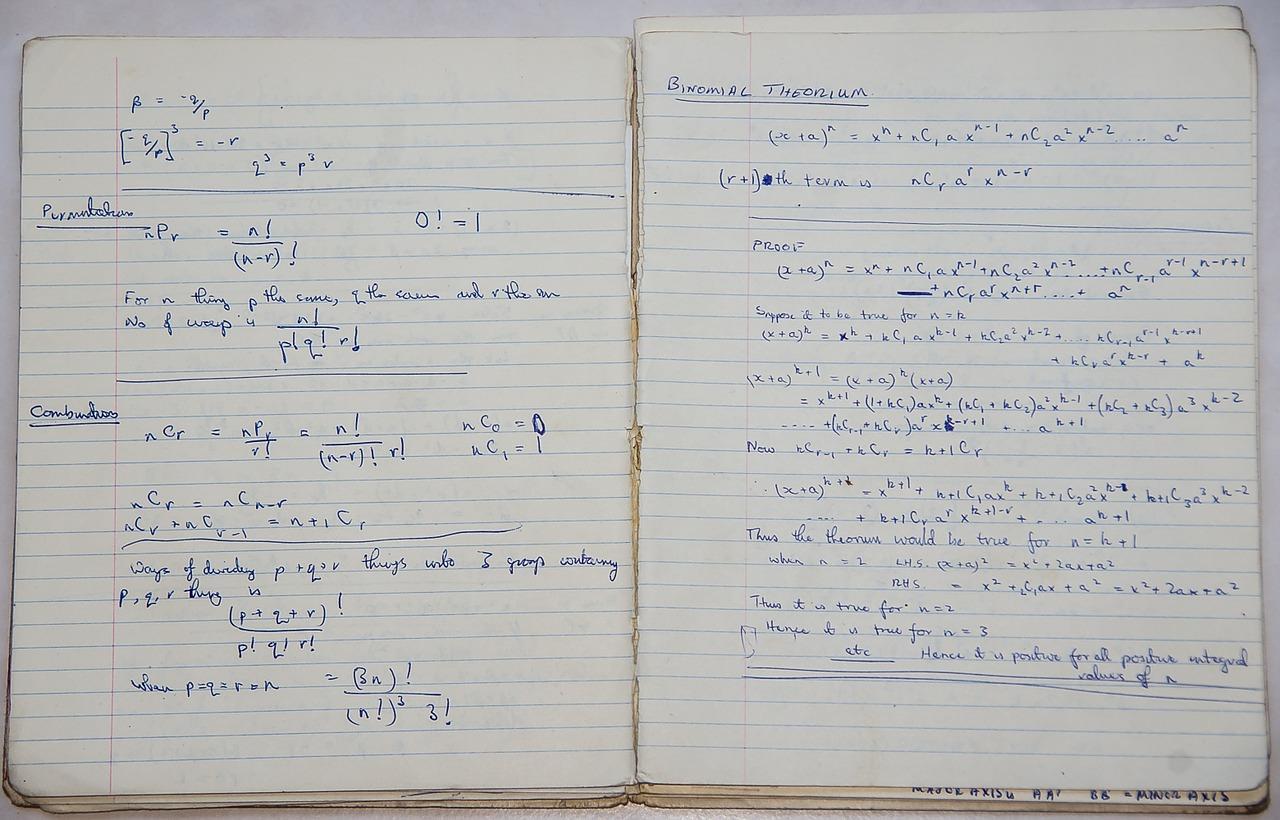 β = -q/p
[-q/p]³ = -r
q³ = p³ r
Permutations
nPr = n! / (n-r)!    0! = 1
For n thing p the same, q the same and r the
No of ways is n! / p! q! r!
Combinations
nCr = nPr / r! = n! / (n-r)! r!    nC₀ = 0
nC₁ = 1
nCr = nCn-r
nCr + nCr-1 = n+1Cr
Ways of dividing p+q+r things into 3 group containing
p, q, r thing is
(p+q+r)! / p! q! r!
when p=q=r=n = (3n)! / (n!)³ 3!
BINOMIAL THEORIUM
(x+a)ⁿ = xⁿ + nC₁ a xⁿ⁻¹ + nC₂a² xⁿ⁻² ..... aⁿ
(r+1)th term is nCr aʳ xⁿ⁻ʳ
PROOF
(x+a)ⁿ = xⁿ + nC₁ a xⁿ⁻¹ + nC₂ a² xⁿ⁻² ..... + nCr-1 aʳ⁻¹ xⁿ⁻ʳ⁺¹
+ nCr aʳ xⁿ⁺ʳ ....+ aⁿ
Suppose it to be true for n=k
(x+a)ᵏ = xᵏ + kC₁ a xᵏ⁻¹ + kC₂a² xᵏ⁻² + ..... kCr-1 aʳ⁻¹ xᵏ⁻ʳ⁺¹
+ kCr aʳ xᵏ⁻ʳ + aᵏ
(x+a)ᵏ⁺¹ = (x+a)ᵏ(x+a)
= xᵏ⁺¹ + (1+kC₁)axᵏ + (kC₁ + kC₂)a²xᵏ⁻¹ + (kC₂ + kC₃) a³ xᵏ⁻²
.... + (kCr-1 + kCr) aʳ xᵏ⁻ʳ⁺¹ + ... aᵏ⁺¹
Now kCr-1 + kCr = k+1 Cr
. (x+a)ᵏ⁺¹ = xᵏ⁺¹ + k+1 C₁axᵏ + k+1 C₂a²xᵏ⁻¹ + k+1 C₃a³ xᵏ⁻²
.... + k+1 Cr aʳ xᵏ⁺¹⁻ʳ + ... aᵏ⁺¹
Thus the theorum would be true for n = k+1
when n = 2 L.H.S. (x+a)² = x² + 2ax + a²
R.H.S. = x² + ₂C₁ax + a² = x² + 2ax + a²
Thus it is true for n=2
Hence it is true for n = 3
etc Hence it is positive for all positive integral
values of n
MAJOR AXIS is AA' BB' = MINOR AXIS